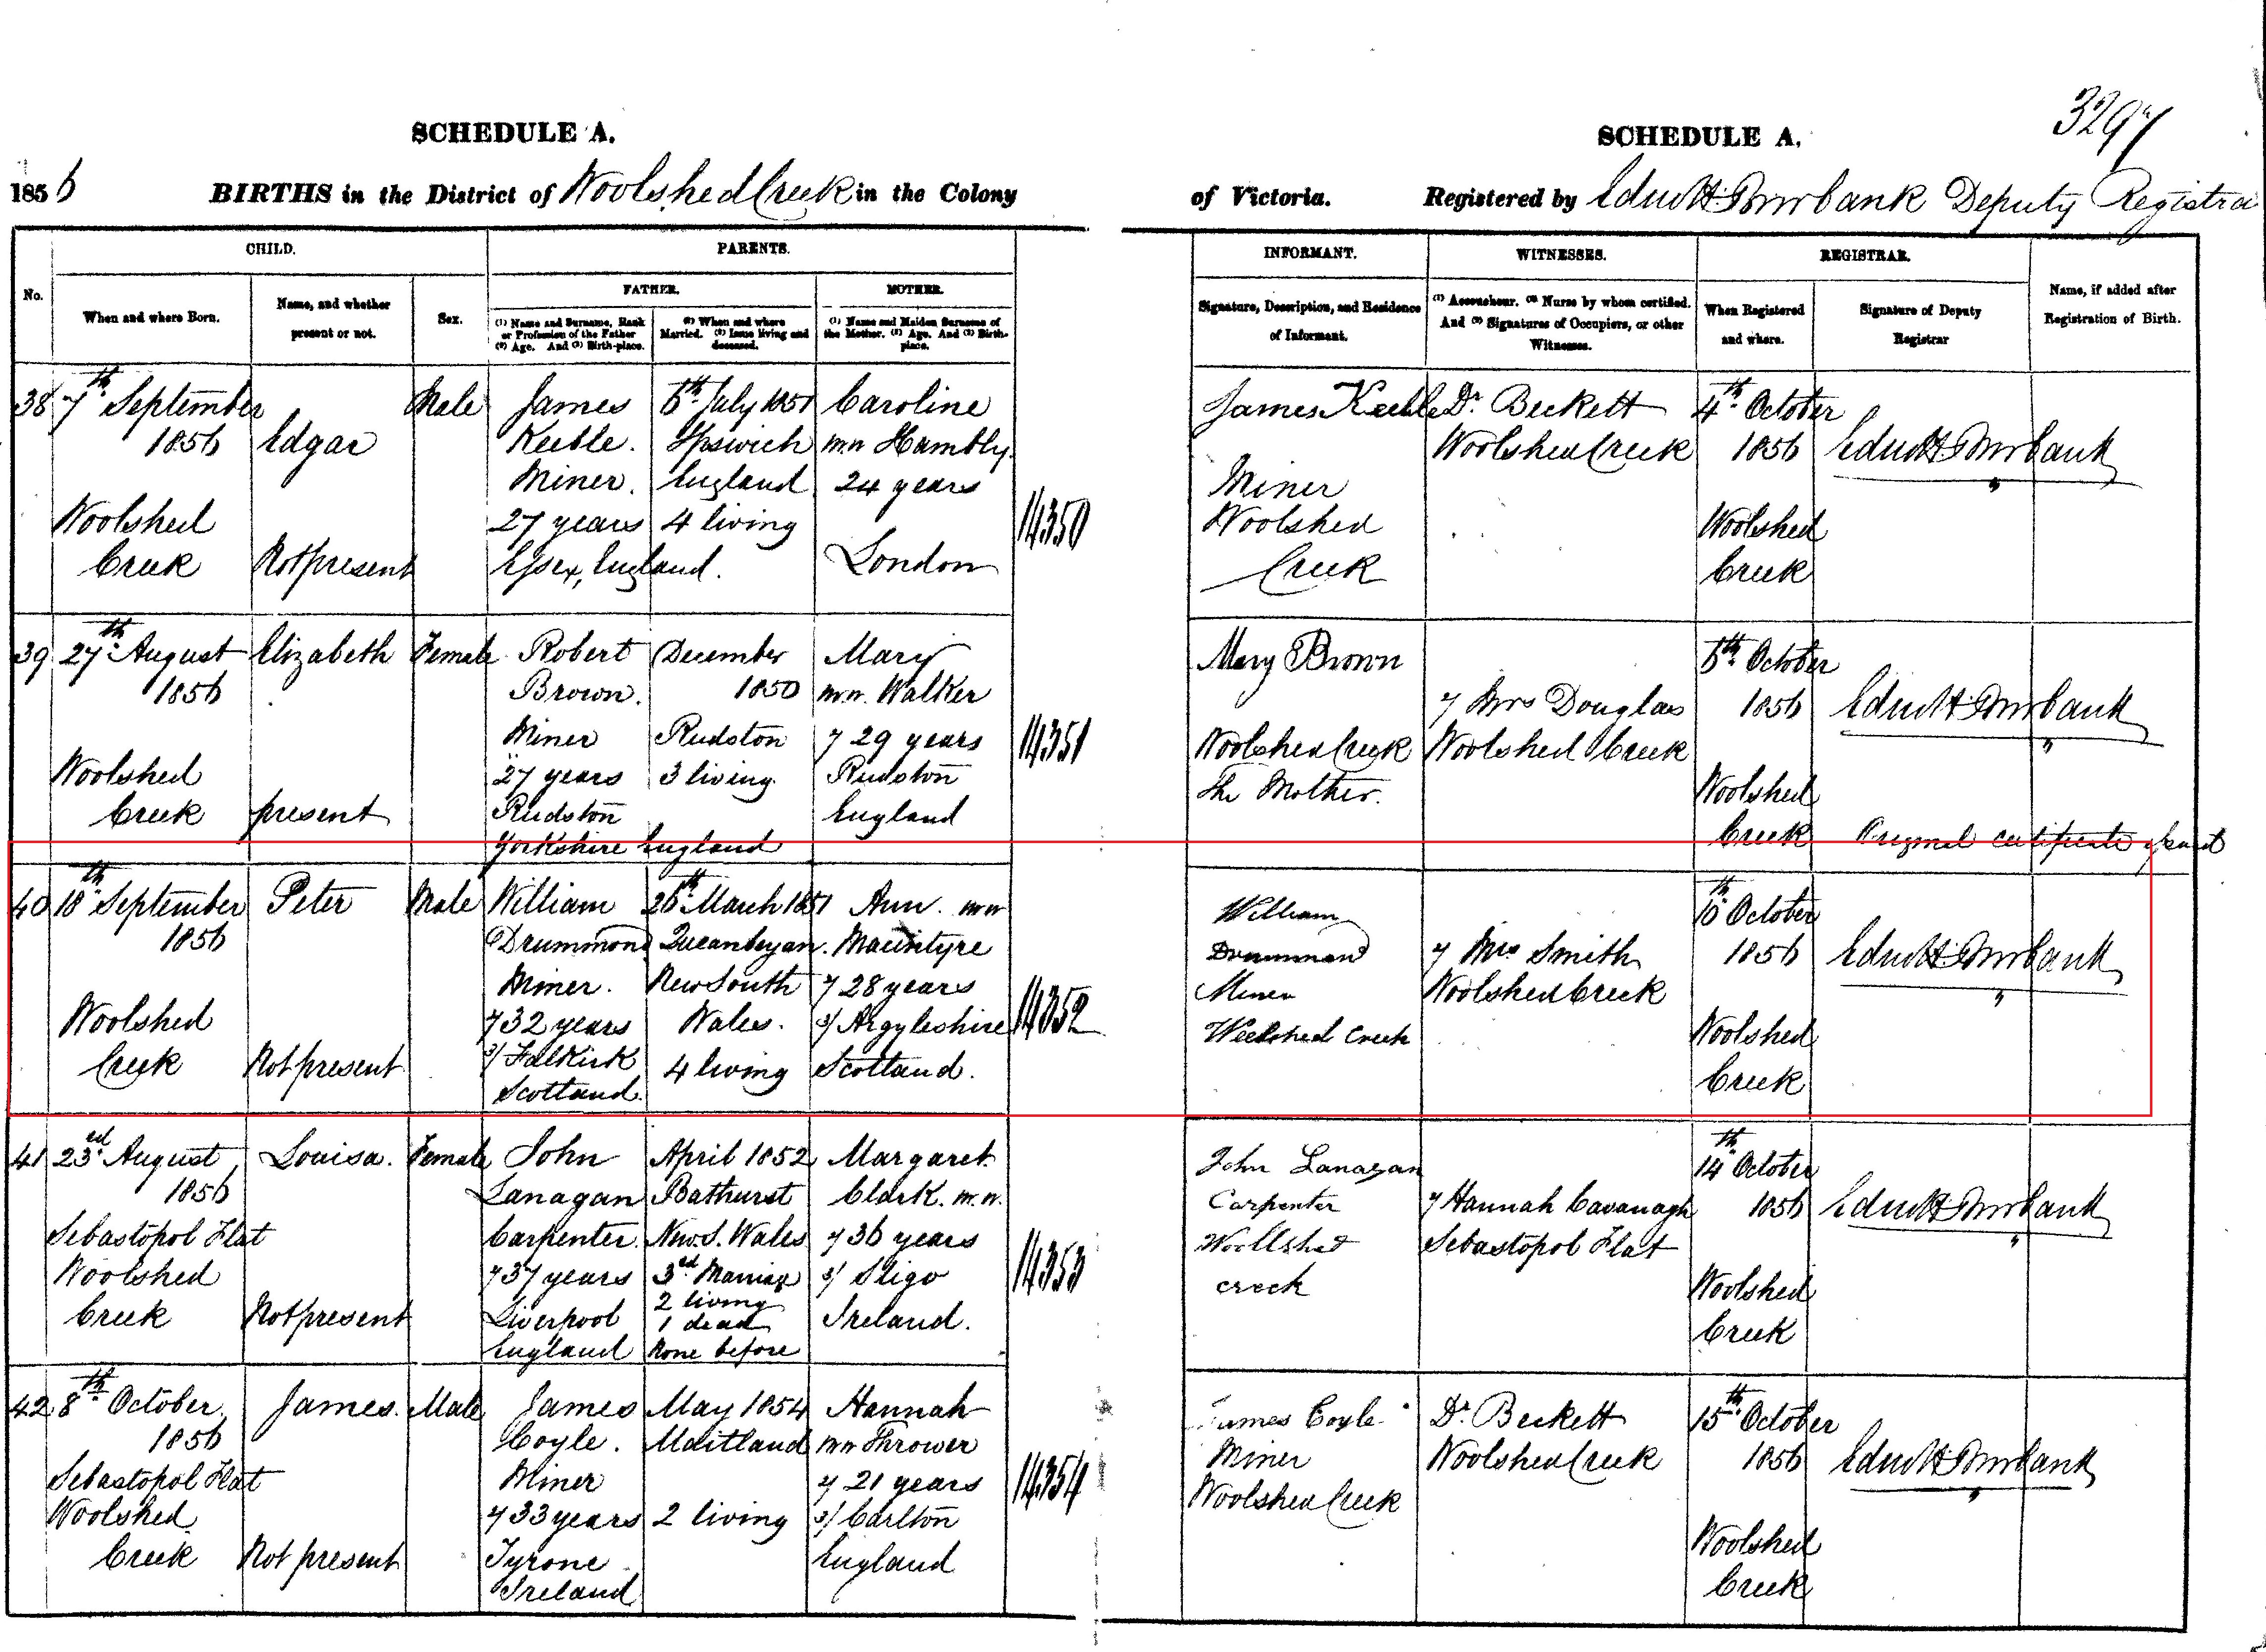 3297
SCHEDULE A.
SCHEDULE A.
1856 BIRTHS in the District of Woolshed Creek in the Colony
of Victoria. Registered by Deputy Registra
No.
CHILD.
When and where Born.
Name, and whether
present or not.
Sex.
PARENTS.
FATHER.
(1) Name and Surname, Rank
or Profession of the Father
(2) Age. And (3) Birth-place.
(2) When and where
Married. (3) Issue living and
deceased.
MOTHER.
(1) Name and Maiden Surname of
the Mother. (2) Age. And (3) Birth-
place.
INFORMANT.
Signature, Description, and Residence
of Informant.
WITNESSES.
(1) Accoucheur. (2) Nurse by whom certified.
And (3) Signatures of Occupiers, or other
Witnesses.
REGISTRAR.
When Registered
and where.
Signature of Deputy
Registrar
Name, if added after
Registration of Birth.
38
7th September
1856
Woolshed
Creek
Edgar
Not present
Male
James
Keeble.
Miner.
27 years
Essex, England.
6th July 1851
Ipswich
England
4 living
Caroline
mn Hambly.
24 years
London
14350
James Keeble
Miner
Woolshed
Creek
Dr. Beckett
Woolshed Creek
4th October
1856
Woolshed
Creek
39
27th August
1856
Woolshed
Creek
Elizabeth
present
Female
Robert
Brown.
Miner
27 years
Rudston
Yorkshire England
December
1850
Rudston
3 living.
Mary
m.n. Walker
29 years
Rudston
England
14351
Mary Brown
Woolshed Creek
The Mother.
Mrs Douglas
Woolshed Creek
6th October
1856
Woolshed
Creek
Original certificate
40
18th September
1856
Woolshed
Creek
Peter
Not present
Male
William
Drummond
Miner.
32 years
3/ Falkirk
Scotland.
26th March 1851
Queanbeyan.
New South
Wales.
4 living
Ann. mn
Macintyre
28 years
3/ Argyleshire
Scotland.
14352
William
Drummond
Miner
Woolshed Creek
Mrs Smith
Woolshed Creek
10th October
1856
Woolshed
Creek
41
23rd August
1856
Sebastopol Flat
Woolshed
Creek
Louisa.
Not present
Female
John
Lanagan
Carpenter.
37 years
Liverpool
England
April 1852
Bathurst
New. S. Wales
3rd Marriage
2 living
1 dead
None before
Margaret
Clark. m.n.
36 years
3/ Sligo
Ireland.
14353
John Lanagan
Carpenter
Woollshed
creek
Hannah Cavanagh
Sebastopol Flat
14th October
1856
Woolshed
Creek
42
8th October.
1856
Sebastopol Flat
Woolshed
Creek
James.
Not present
Male
James
Coyle.
Miner
33 years
Tyrone
Ireland
May 1854
Maitland
2 living
Hannah
mn Thrower
21 years
3/ Carlton
England
14354
James Coyle
Miner
Woolshed Creek
Dr. Beckett
Woolshed Creek
15th October
1856
Woolshed
Creek